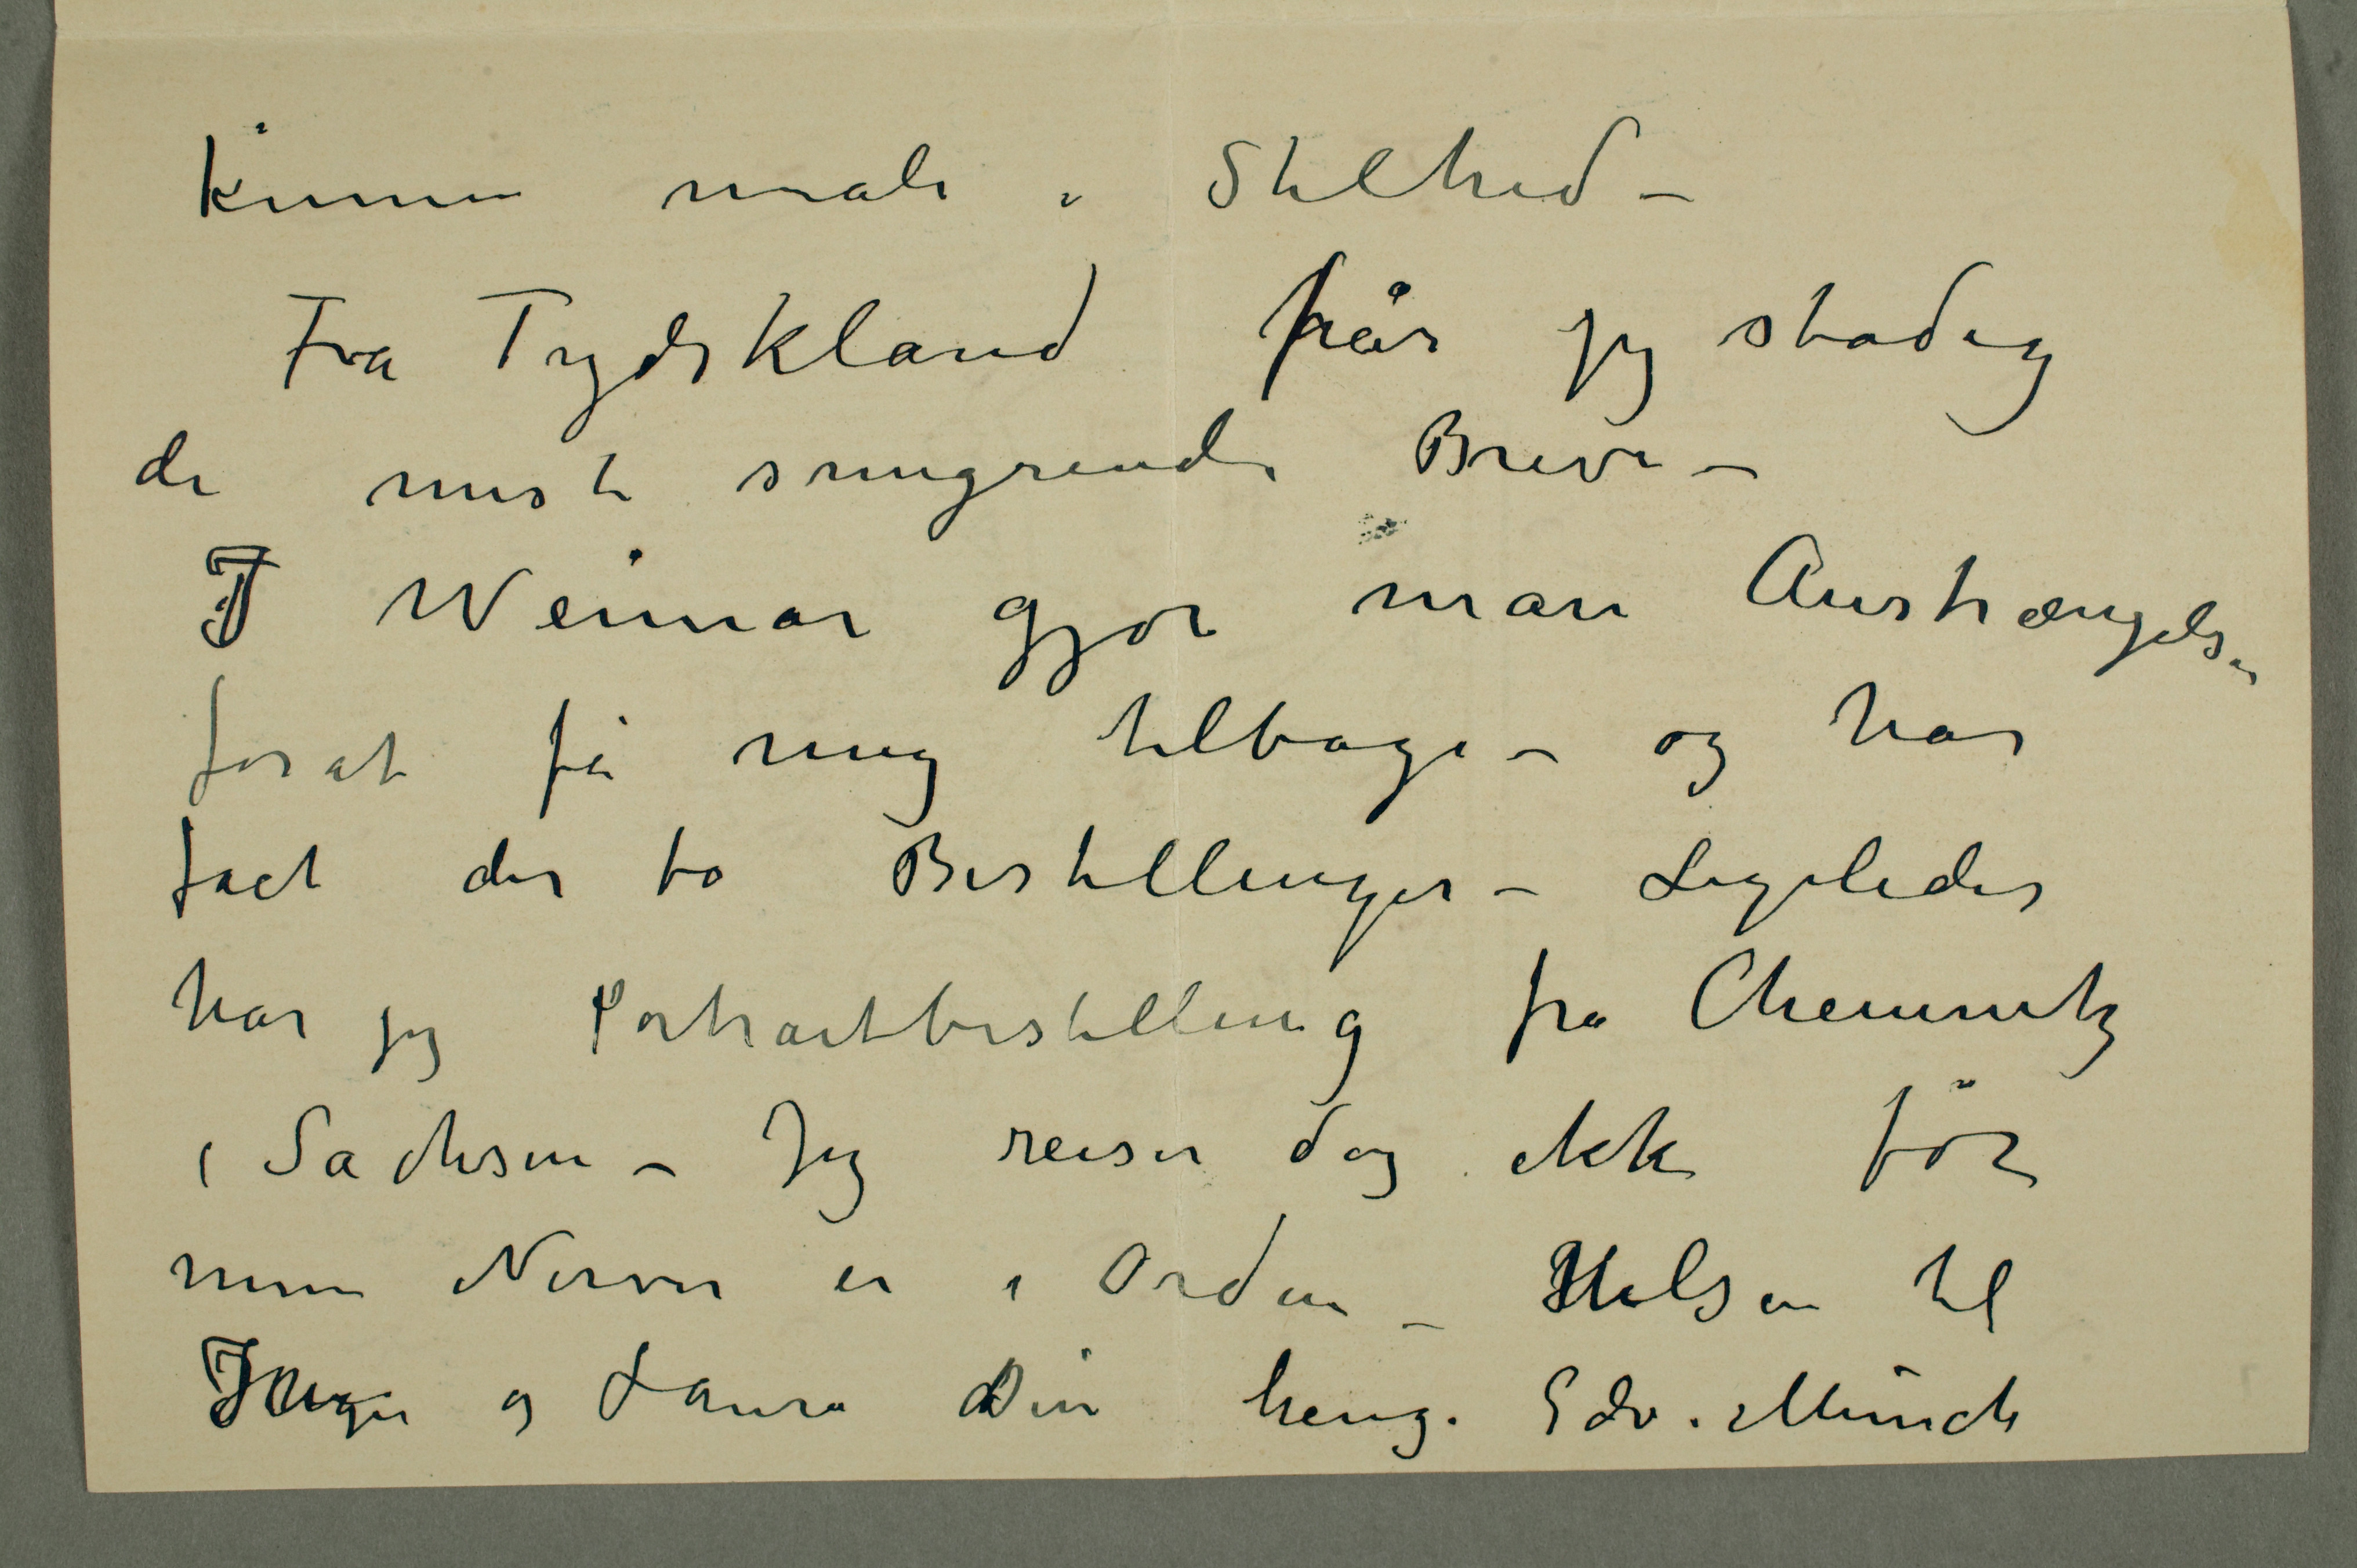 kunne male i Stilhed –
Fra Tydskland får jeg stadig
de mest smigrende Breve –
I Weimar gjør man Anstrængelser
forat få mig tilbage – og har
fået der to Bestillinger – Ligeledes
har jeg Portraitbestilling fra Chemnitz
i Sachsen – Jeg reiser dog ikke för
mine Nerver er i Orden – Hilsen til
Inger og Laura Din heng. Edv. Munch